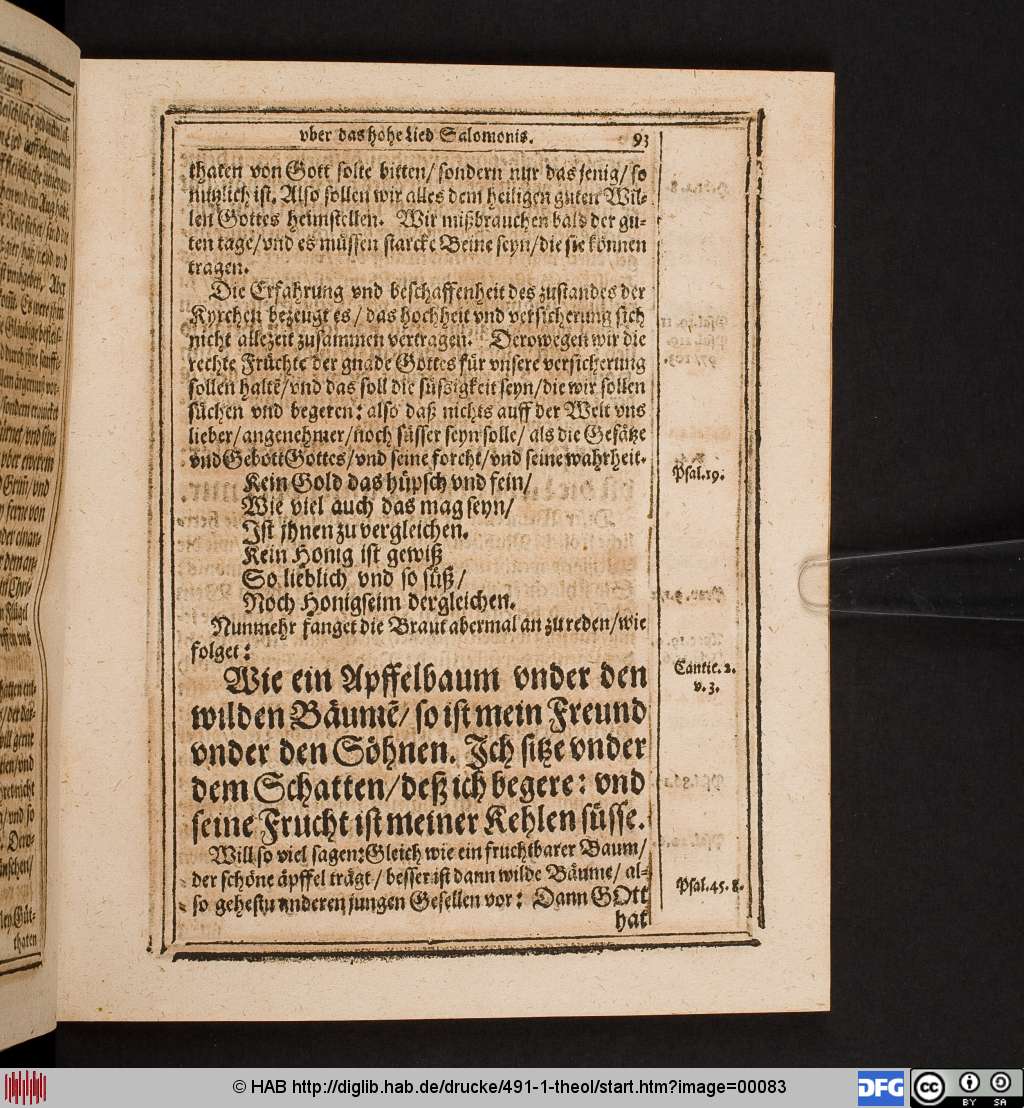 vber das hohe Lied Salomonis. 93
thaten von Gott solte bitten/ sondern nur das jenig/ so
nutzlich ist. Also sollen wir alles dem heiligen guten Wil-
len Gottes heimstellen. Wir mißbrauchen bald der gu-
ten tage/ vnd es müssen starcke Beine seyn/ die sie können
tragen.
Die Erfahrung vnd beschaffenheit des zustandes der
Kyrchen bezeugt es/ das hochheit vnd versicherung sich
nicht allezeit zusammen vertragen. Derowegen wir die
rechte Früchte der gnade Gottes für vnsere versicherung
sollen haltē/ vnd das soll die süssigkeit seyn/ die wir sollen
süchen vnd begeren: also daß nichts auff der Welt vns
lieber/ angenehmer/ noch süsser seyn solle/ als die Gesätze
vnd Gebott Gottes/ vnd seine forcht/ vnd seine wahrheit.
Kein Gold das hüpsch vnd fein/
Psal. 19.
Wie viel auch das mag seyn/
Ist jhnen zu vergleichen.
Kein Honig ist gewiß
So lieblich vnd so süß/
Noch Honigseim dergleichen.
Nunmehr fanget die Braut abermal an zu reden/ wie
folget:
Wie ein Apffelbaum vnder den
Cantic. 2.
v. 3.
wilden Bäumē/ so ist mein Freund
vnder den Söhnen. Ich sitze vnder
dem Schatten/ deß ich begere: vnd
seine Frucht ist meiner Kehlen süsse.
Will so viel sagen: Gleich wie ein fruchtbarer Baum/
der schöne äpffel trägt/ besser ist dann wilde Bäume/ al-
Psal. 45. 8.
so gehestu anderen jungen Gesellen vor: Dann GOtt
hat
© HAB http://diglib.hab.de/drucke/491-1-theol/start.htm?image=00083
DFG
cc
BY SA